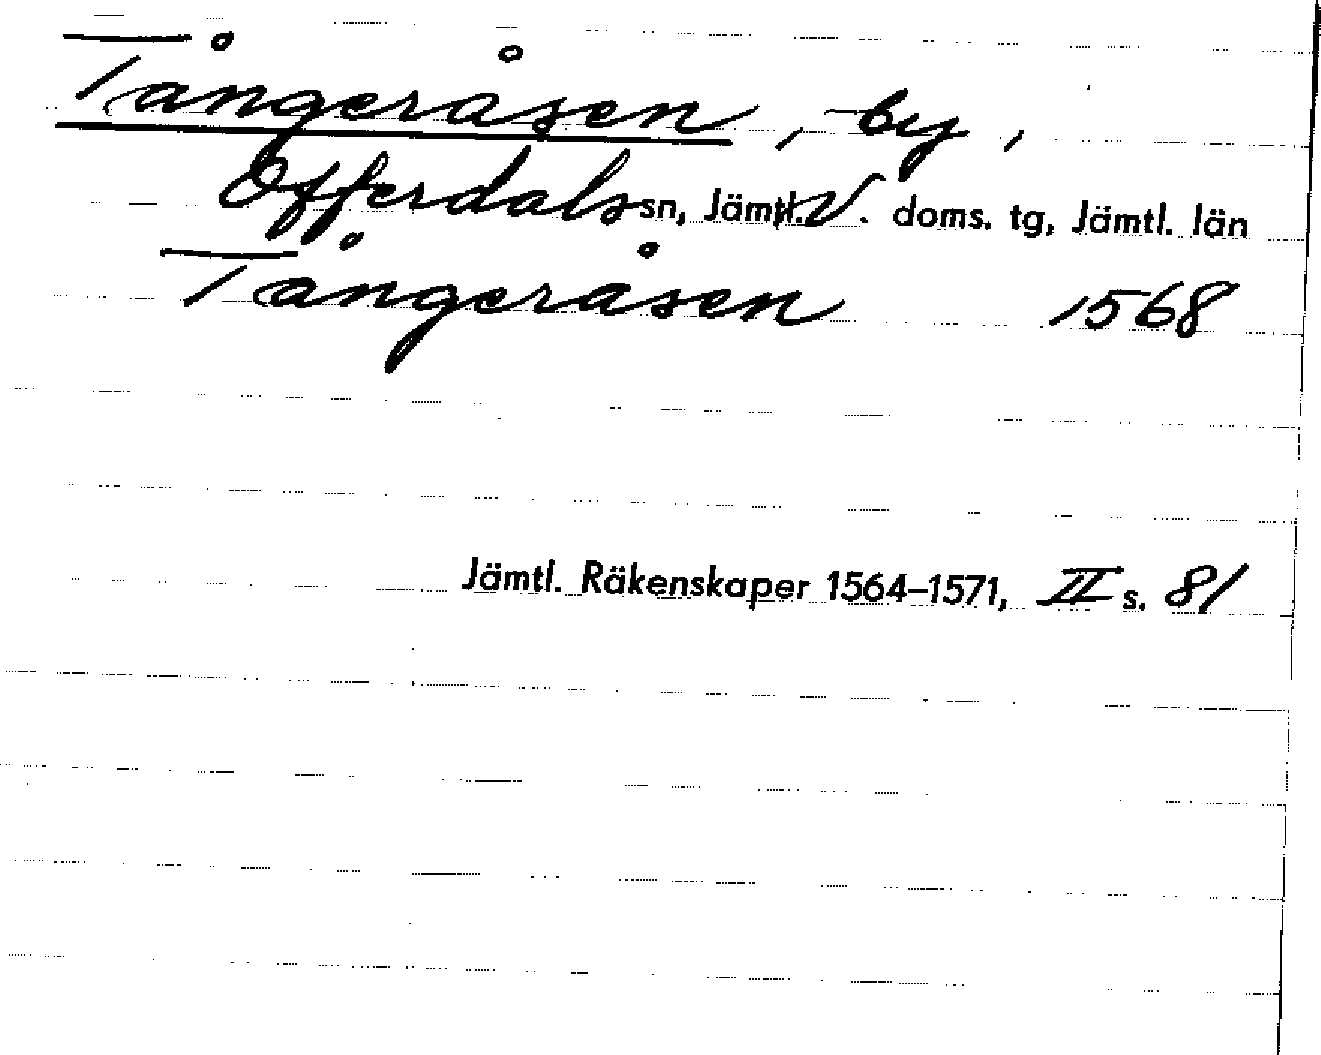 Tångeråsen, by,
Offerdals sn, Jämtl. V. doms. tg, Jämtl. län
Tångeråsen 1568
Jämtl. Räkenskaper 1564–1571, II s. 81